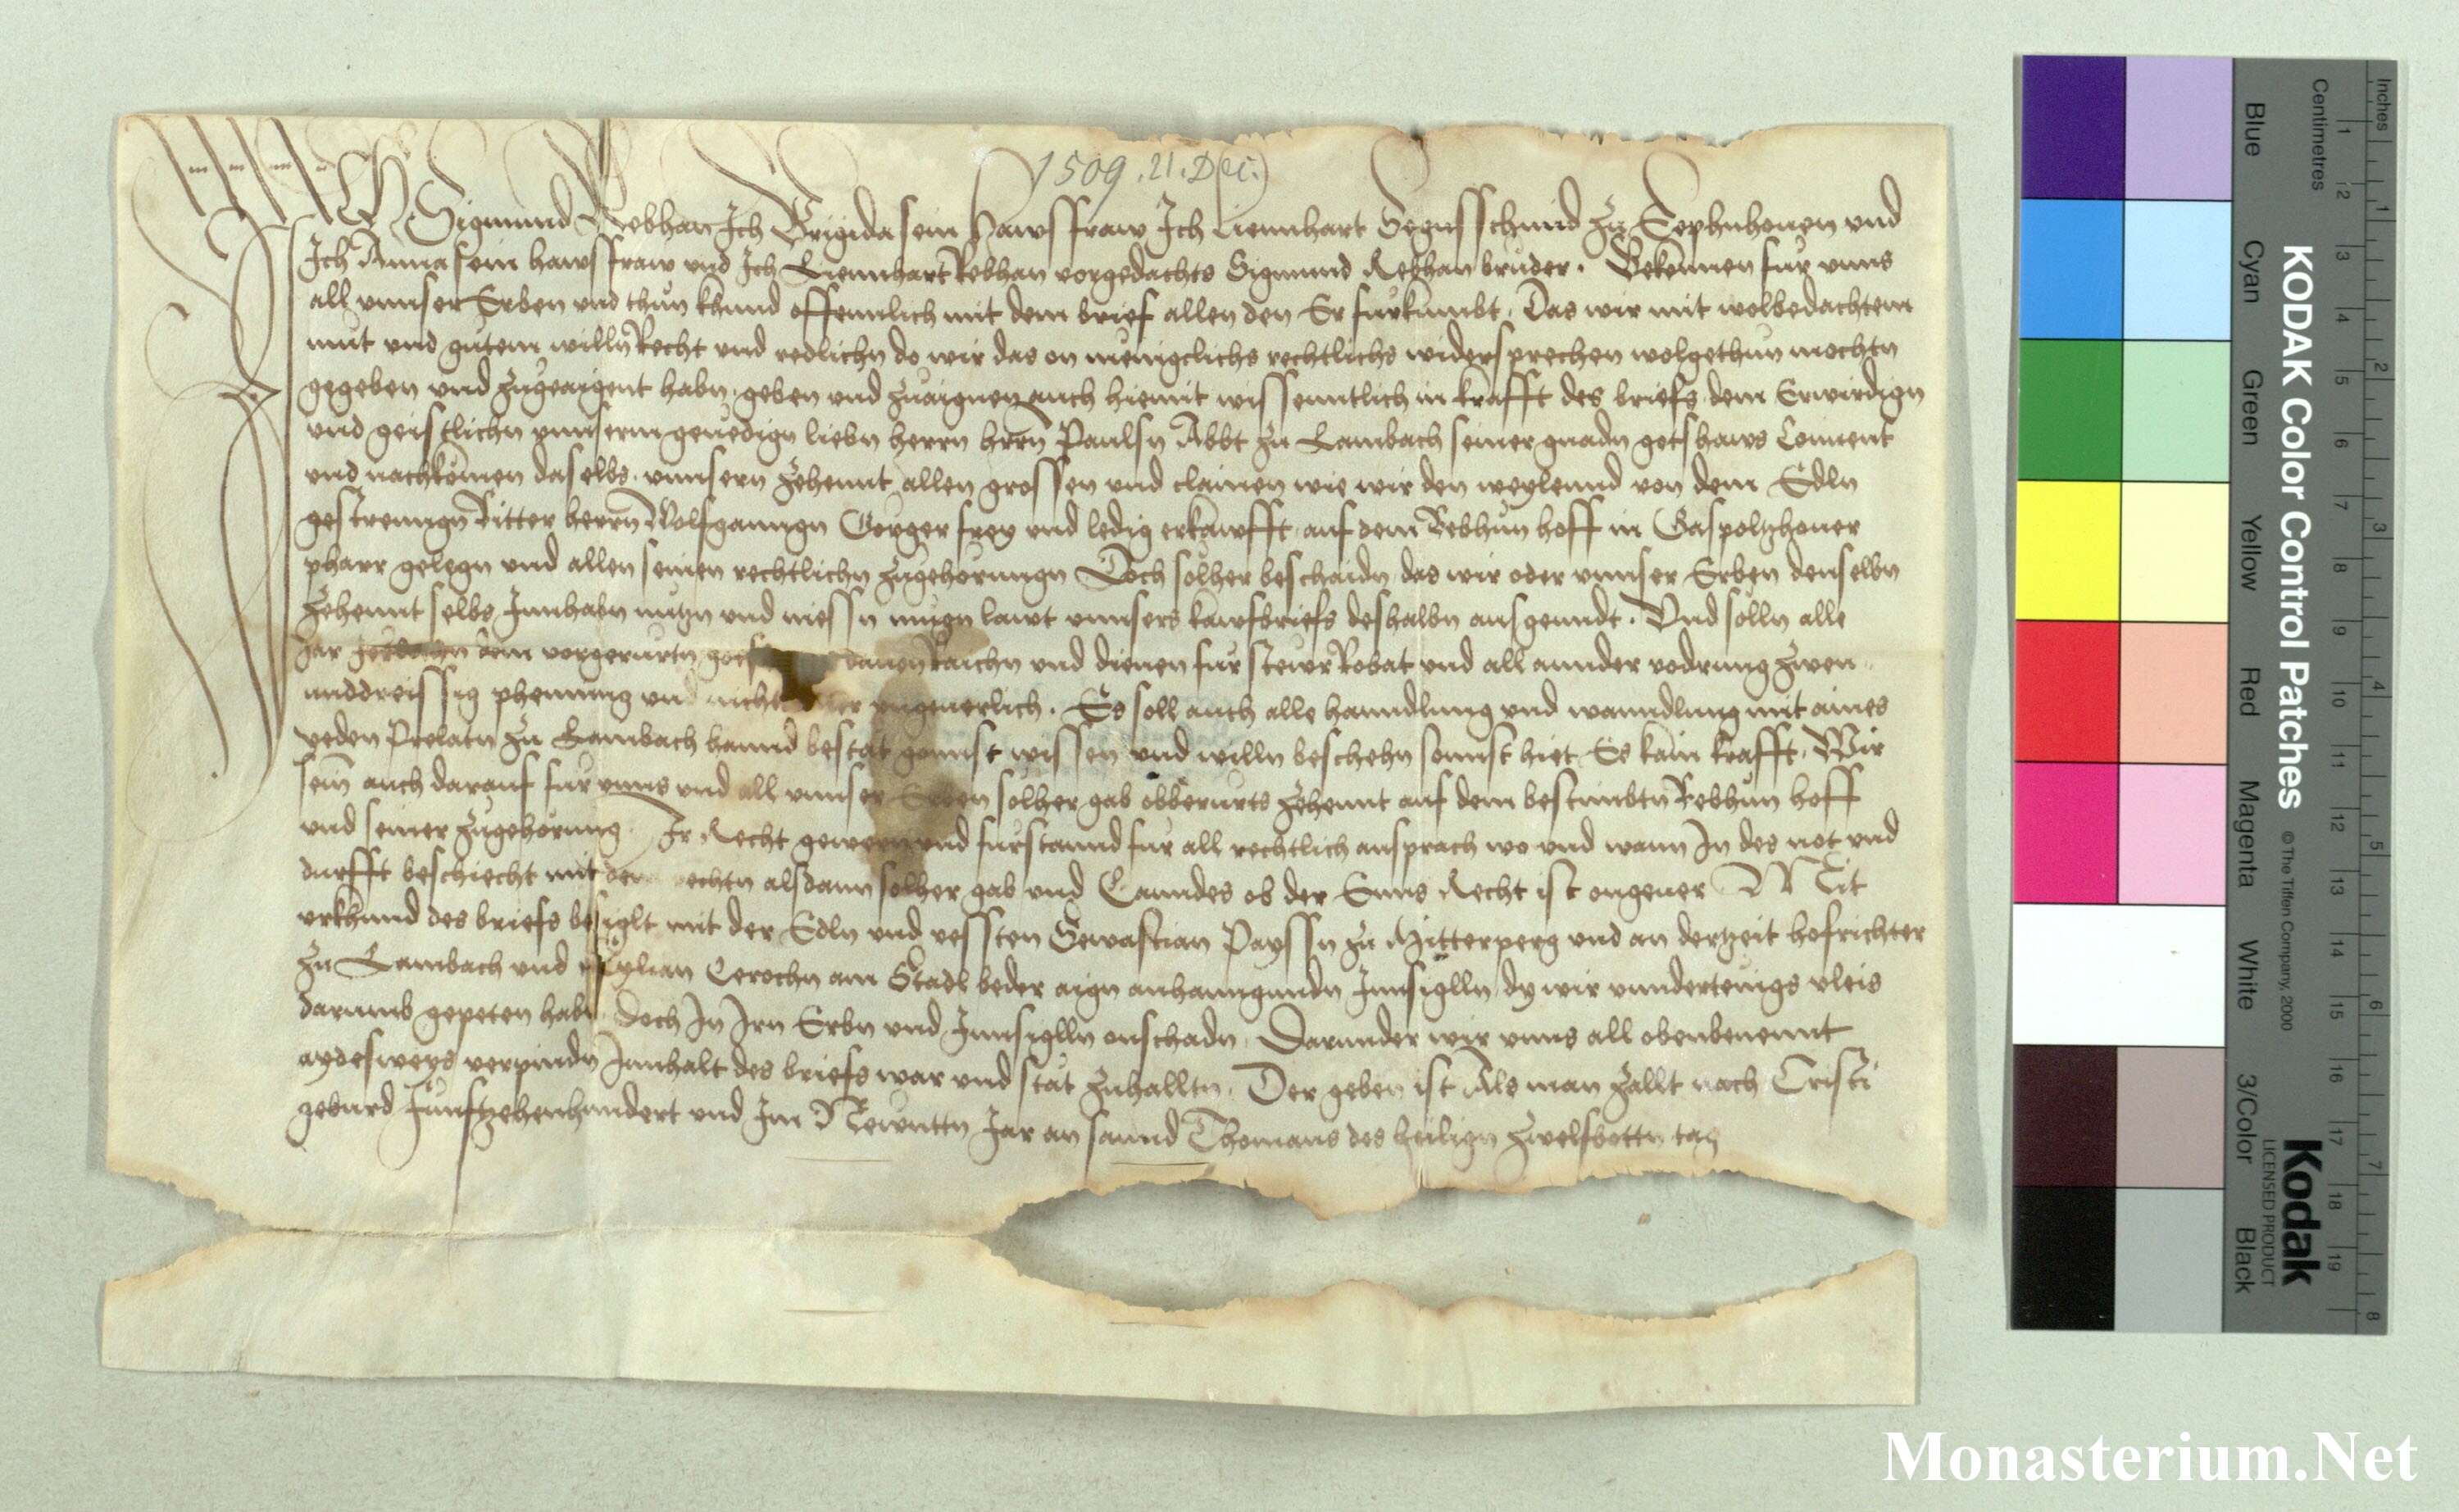 1509. 21. Dec.
ICh Sigmund Rebhan Ich Brigida sein hawsfraw Ich Liennhart Segnsschmid zu und
Ich Anna sein hawsfraw vnd Ich Liennhart Rebhan vorgedachts Sigmund Rebhan bruder. Bekennen fur vnns
all vnnser Erben vnd thun khund offennlich mit dem brief allen den Er furkumbt, Das wir mit wolbedachtem
mut vnd gutem willn Recht vnd redlichn do wir das on menigclichs rechtlichs widersprechen wolgethun mochtn
gegeben vnd zugeaigent habn, geben vnd zuaignen auch hiemit wissenntlich in krafft des briefs dem Erwirdign
vnd geistlichn vnnserm genedign liebn herrn hrrn Paulsn Abbt zu Lambach seiner gnadn gotshaws Conuent
vnd nachkomen daselbs. vnnsern zehennt allen grossen vnd clainen wie wir den weylennd von dem Edln
gestrenngn Ritter herrn Wolfganngn Gorger frey vnd ledig erkawfft, auf dem Rebhun hoff in Gaspoltzhouer
pharr gelegn vnd allen seinen rechtlichn zugehorungn Doch solher beschaidn das wir oder vnnser Erben denselbn
zehennt selbs Innhabn nutzn vnd niessn mugn lawt vnnsers kawfbriefs deshalbn ausgenndt. Vnd solln alle
Jar dem vorgerurtn dauon Raichn vnd dienen fur stewr Robat vnd all annder vodrung zwen
unddreissig phenning vnd nicht vngeuerlich. Es soll auch alle hanndlung vnd wanndlung mit aines
yeden Prelatn zu Lambach hannd bestat gunnst wissen vnd willn beschehn sonnst hiet Es kain krafft, Wir
sein auch darauf fur vnns vnd all vnnser Erben solher gab obberurts zehennt auf dem bestimbtn Rebhun hoff
vnd seiner zugehorung Ir Recht gewern vnd furstannd fur all rechtlich ansprach wo vnd wann In des not vnd
durfft beschiecht mit dem rechtn alsdann solher gab vnd Lanndes ob der Enns Recht ist ongeuer MIt
vrkhund des briefs besiglt mit der Edln vnd vessten Sewastian Payssn zu Mitterperg vnd an dertzeit hofrichter
zu Lambach vnd am Stadl beder aign anhanngundn Innsiglln dy wir vnndertenigs vleis
darumb gepeten habn Doch In Irn Erbn vnd Innsiglln onschadn, Darunder wir vnns all obenbenennt
aydesweys verpindn Innhalt des briefs war vnd stat zuhalltn. Der geben ist Als man zallt nach Cristi
geburd Funftzehenhundert vnd Im Newnttn Jar an sannd Thomans des heilign zwelfbottn tag
KODAK Color Control Patches
© The Tiffen Company, 2000
Kodak
LICENSED PRODUCT
Inches
Centimetres
Blue
Cyan
Green
Yellow
Red
Magenta
White
3/Color
Black
1 2 3 4 5 6 7 8 9 10 11 12 13 14 15 16 17 18 19
1 2 3 4 5 6 7 8
Monasterium.Net